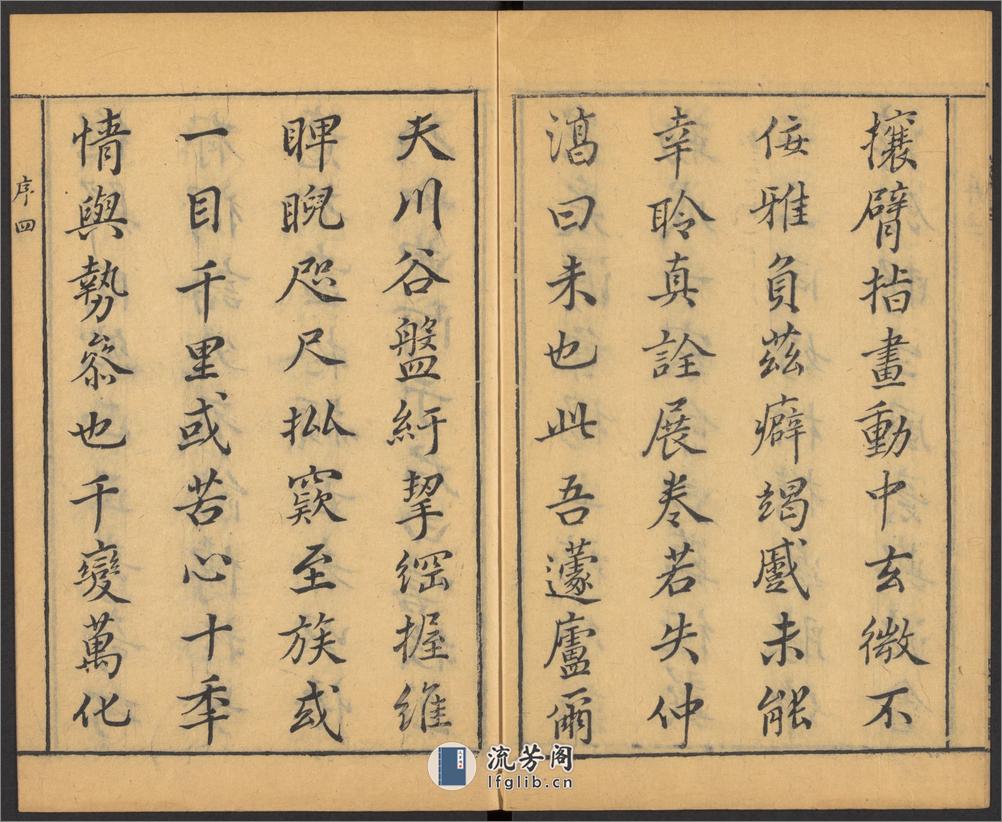 攘臂指畫動中玄微不
佞雅負茲癖竭蹙未能
幸聆真詮展卷若失仲
潏曰未也此吾蘧廬爾
夫川谷盤紆挈綱握維
睥睨咫尺批窾至族或
一目千里或苦心十年
情與勢叅也千變萬化
序四
流芳阁
lfglib.cn